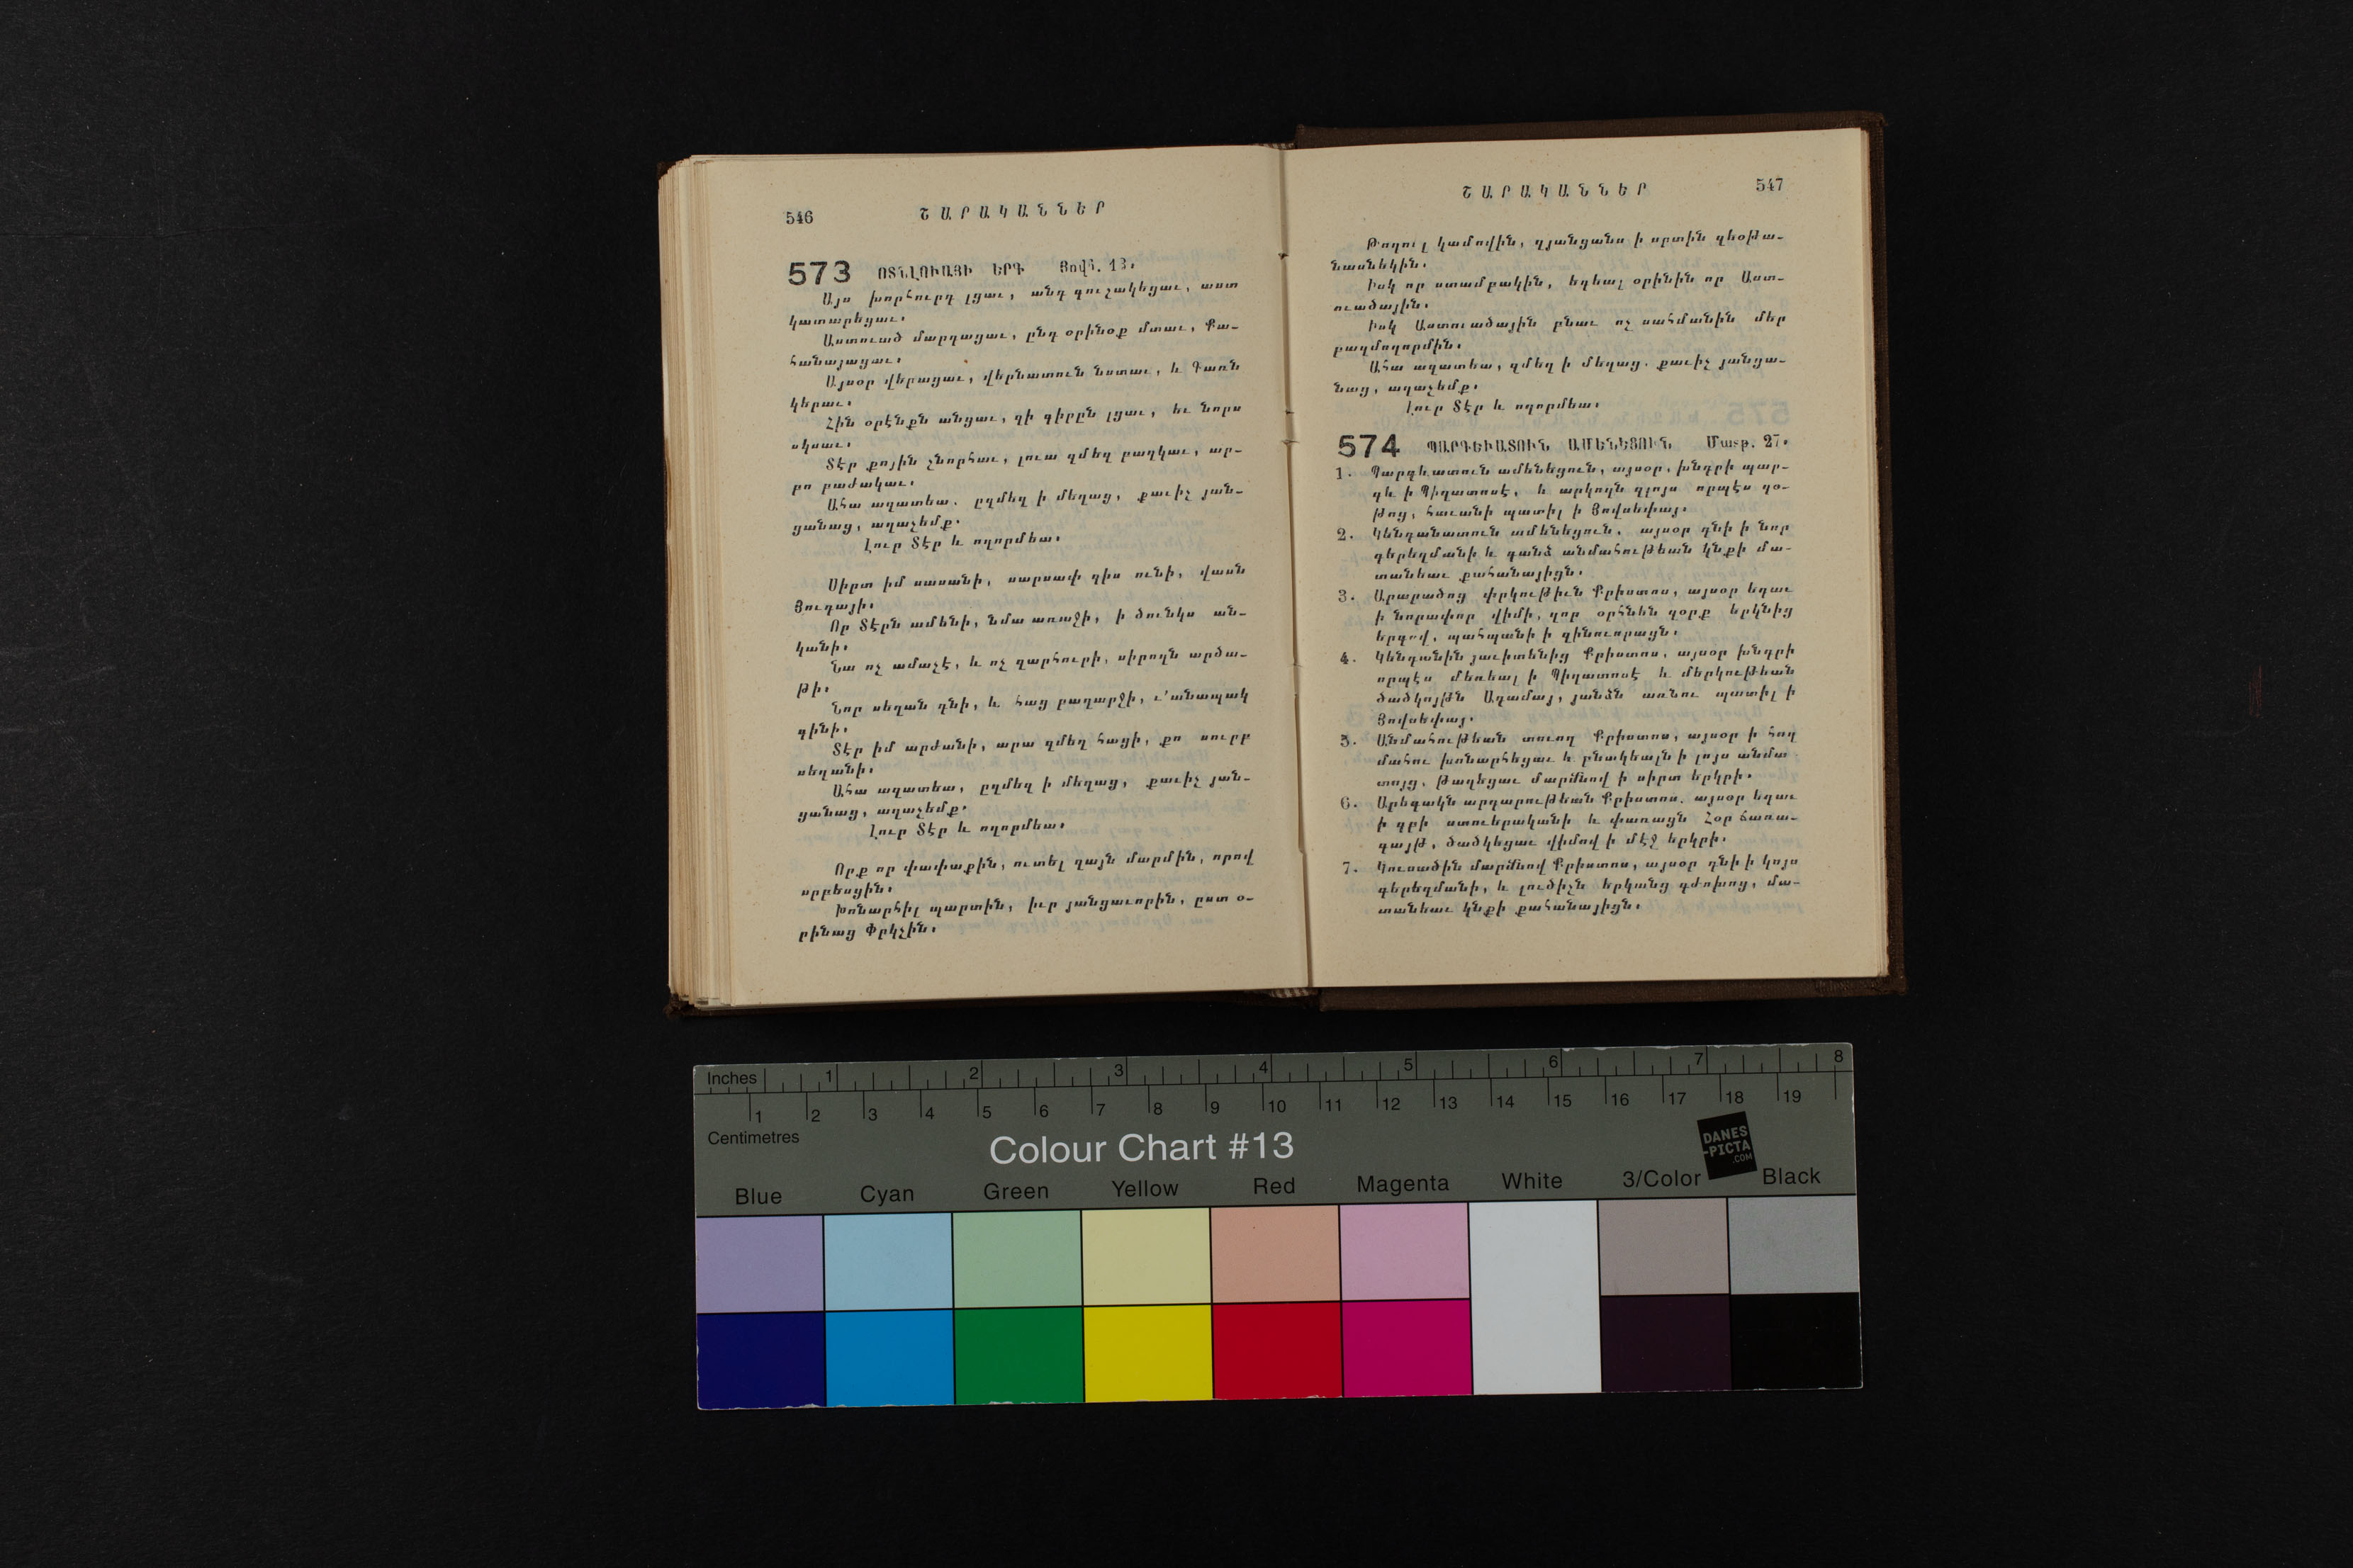 546
ՇԱՐԱԿԱՆՆԵՐ
573 ՈՏՆԼՈՒԱՅԻ ԵՐԳ Յովհ. 13.
Այս խորհուրդ լցաւ, անդ գուշակեցաւ, աստ
կատարեցաւ.
Աստուած մարդացաւ, ընդ օրինօք մտաւ, Քա-
հանայացաւ.
Այսօր վերացաւ, վերնատուն նստաւ, և Գառն
կերաւ.
Հին օրէնքն անցաւ, զի գիրըն լցաւ, եւ նորս
սկսաւ.
Տէր քոյին շնորհաւ, լուա զմեղ բաղկաւ, ար-
բո բաժակաւ.
Ահա աղատեա. ըզմեղ ի մեղաց, քաւիչ յան-
ցանաց, աղաչեմք.
Լուր Տէր և ողորմեա.
Սիրտ իմ սասանի, սարսափ զիս ունի, վասն
Յուդայի.
Որ Տէրն ամենի, նմա առաջի, ի ծունկս ան-
կանի.
Նա ոչ ամաչէ, և ոչ զարհուրի, սիրողն արծա-
թի.
Նոր սեղան դնի, և հաց բաղարջի, ւ՚անապակ
գինի.
Տէր իմ արժանի, արա զմեղ հացի, քո սուրբ
սեղանի.
Ահա աղատեա, ըզմեղ ի մեղաց, քաւիչ յան-
ցանաց, աղաչեմք.
Լուր Տէր և ողորմեա.
Որք որ փափաքին, ուտել զայն մարմին, որով
սրբեսցին.
Խոնարհիլ պարտին, իւր յանցաւորին, ըստ օ-
րինաց Փրկչին.
ՇԱՐԱԿԱՆՆԵՐ
547
Թողուլ կամովին, զյանցանս ի սրտին զեօթա-
նասնեկին.
Իսկ որ ստամբակին, եղեալ օրինին որ Աստ-
ուածային.
Իսկ Աստուածային բնաւ ոչ սահմանին մեր
բազմողորմին.
Ահա աղատեա, զմեղ ի մեղաց. քաւիչ յանցա-
նաց, աղաչեմք.
Լուր Տէր և ողորմեա.
574 ՊԱՐԳԵՒԱՏՈՒՆ ԱՄԵՆԵՑՈՒՆ Մատթ. 27.
1. Պարգևատուն ամենեցուն, այսօր, խնդրի պար-
գև ի Պիղատոսէ, և արկողն զլոյս որպէս զօ-
թոց, հաւանի պատիլ ի Յովսեփայ.
2. Կենդանատուն ամենեցուն, այսօր դնի ի նոր
գերեզմանի և գանձ անմահութեան կնքի մա-
տանեաւ քահանայիցն.
3. Արարածոց փրկութիւն Քրիստոս, այսօր եդաւ
ի նորափոր վիմի, զոր օրհնեն զօրք երկնից
երգով, պահպանի ի զինուորացն.
4. Կենդանին յաւիտենից Քրիստոս, այսօր խնդրի
որպէս մեռեալ ի Պիղատոսէ և մերկութեան
ծածկոյթն Ադամայ, յանձն առնու պատիլ ի
Յովսեփայ.
5. Անմահութեան տուող Քրիստոս, այսօր ի հող
մահու խոնարհեցաւ և բնակեալն ի լոյս անմա
տոյց, թաղեցաւ մարմնով ի սիրտ երկրի.
6. Արեգակն արդարութեան Քրիստոս. այսօր եդաւ
ի դրի ստուերականի և փառացն Հօր ճառա-
գայթ, ծածկեցաւ վիմով ի մէջ երկրի.
7. Կուսածին մարմնով Քրիստոս, այսօր դնի ի կոյս
գերեզմանի, և լուծիչն երկանց դժոխոց, մա-
տանեաւ կնքի քահանայիցն.
Inches 1 2 3 4 5 6 7 8
1 2 3 4 5 6 7 8 9 10 11 12 13 14 15 16 17 18 19
Centimetres
Colour Chart #13
DANES
-PICTA
.COM
Blue Cyan Green Yellow Red Magenta White 3/Color Black